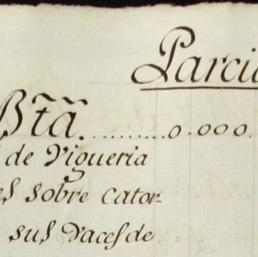 Parci
Bta. ........... 0.000.
de Vigueria
es sobre cator-
sus Vaces de